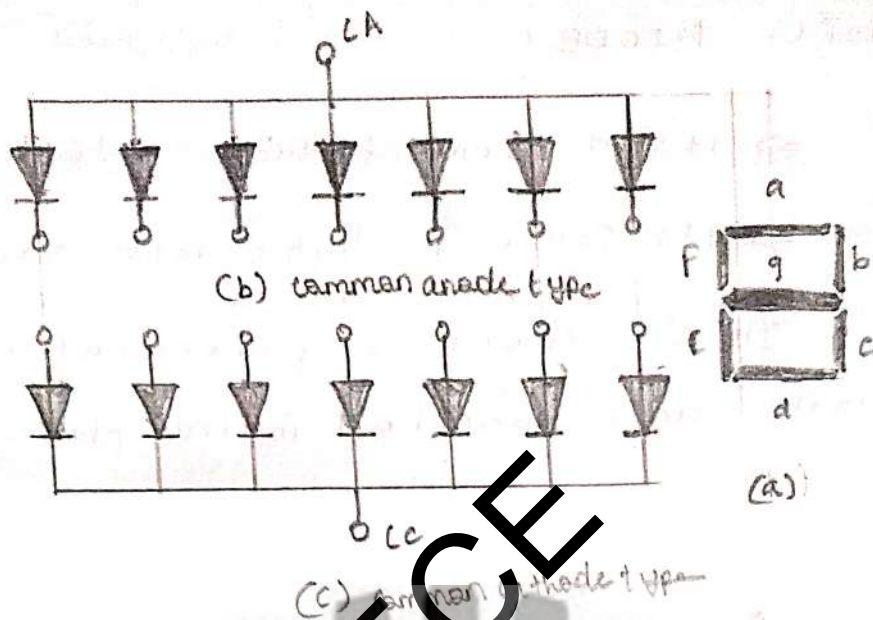 CA
(b) common anode type
a
F
g
b
e
c
d
(a)
CC
(c) common cathode type
ECE